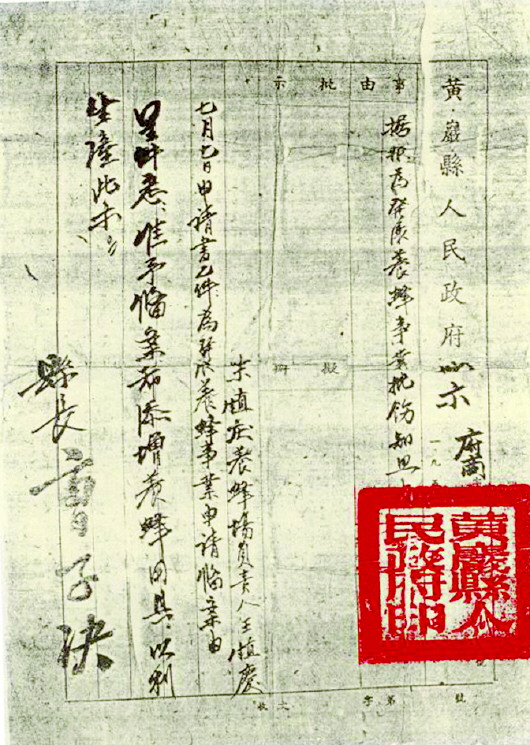 黃巖縣人民政府批示
府商
一九五
事由
批示
擬辦
為發展養蜂事業批飭知照
養蜂場負責人王慎慶
七月七日申請書乙件為發展養蜂事業申請備案由
呈件悉准予備案希添增養蜂用具以利
生產此示
縣長
黃巖縣人
民政府印
收文 字第 號